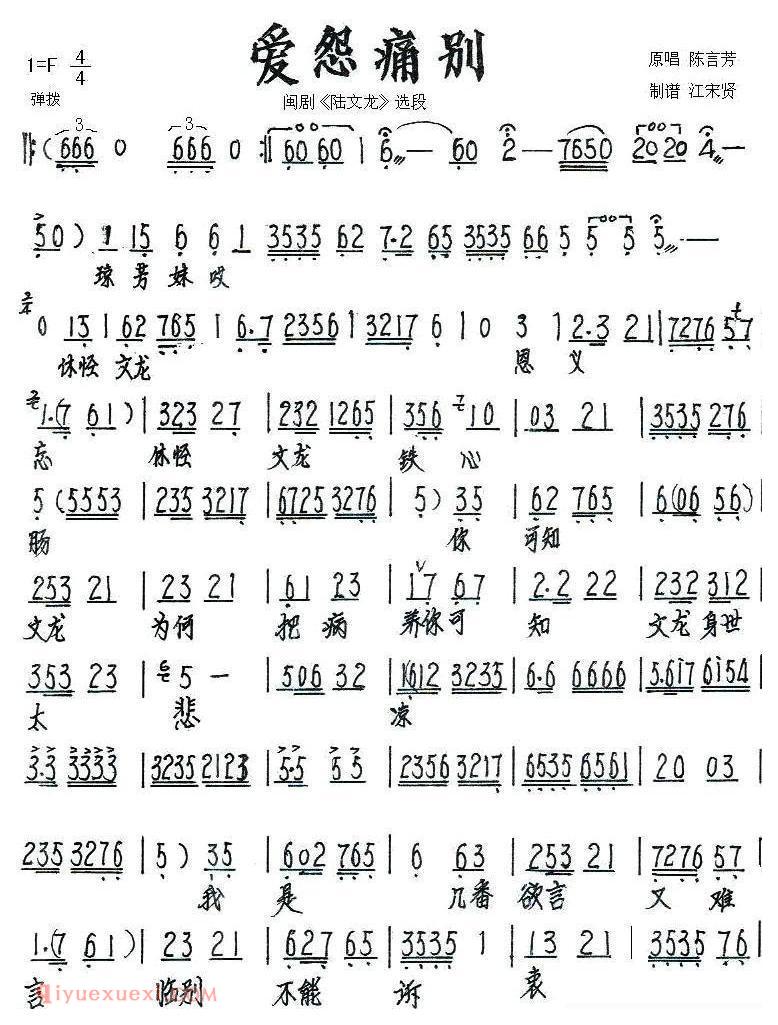 爱怨痛别
1=F 4/4
原唱 陈言芳
弹拨
闽剧《陆文龙》选段
制谱 江宋贤
3 3
(666 0 666 0 :‖ 60 60 | 6 — 60 2 — 7650 20 20 4 —
50 ) 1 15 6 6 1 3535 62 7·2 65 3535 66 5 5 5 5 —
琼芳妹哎
0 13 | 62 765 | 6·7 2356 | 3217 6 | 0 3 | 2·3 21 | 7276 57
休怪 文龙 恩 义
1·(7 61) | 323 27 | 232 1265 | 356 10 | 03 21 | 3535 276 |
忘 休怪 文龙 铁 心
5 (5553 | 235 3217 | 6725 3276 | 5) 35 | 62 765 | 6(06 56) |
肠 你 可知
253 21 | 23 21 | 61 23 | 17 67 | 2·2 22 | 232 312 |
文龙 为何 把病 养你可 知 文龙身世
353 23 | 5 — | 506 32 | (1612 3235 | 6·6 6666 | 5·617 6154 |
太 悲 凉
3·3 3333 | 3235 2123 | 5·5 55 | 2356 3217 | 6535 6561 | 20 03 |
235 3276 | 5) 35 | 602 765 | 6 63 | 253 21 | 7276 57 |
我 是 几番 欲言 又 难
1·(7 61) | 23 21 | 627 65 | 3535 1 | 13 21 | 3535 76 |
言 临别 不能 诉 衷
qiyuexuexi.com